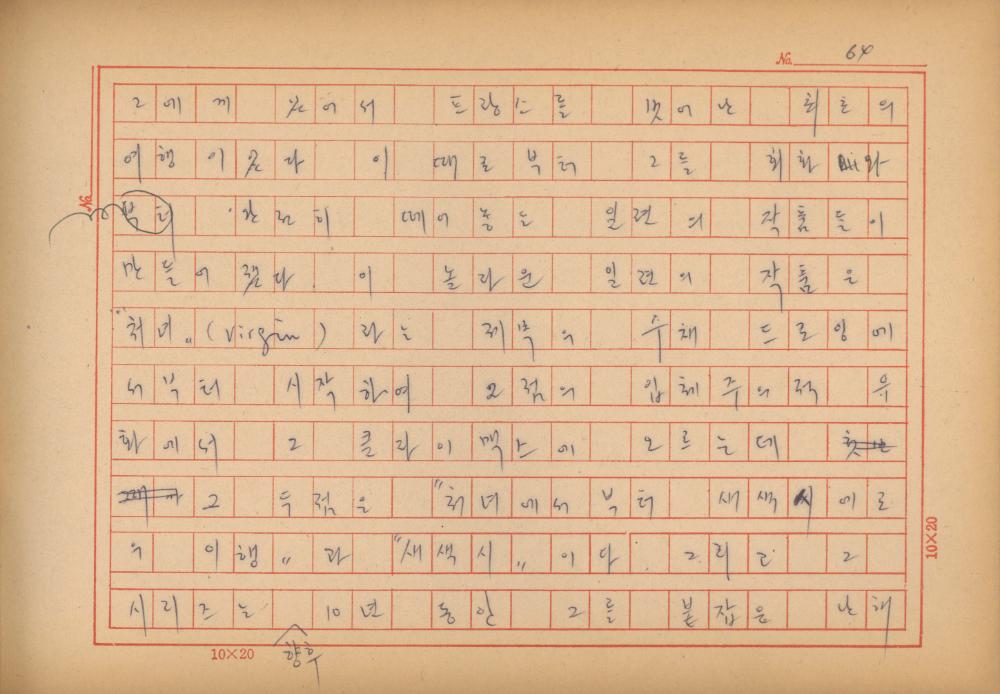 No. 64
그에게 있어서 프랑스를 벗어난 최초의
여행이였다 이때로부터 그를 회화와
부터 간련히 떼어놓는 일련의 작품들이
만들어졌다. 이 놀라운 일련의 작품은
"처녀" (Virgin) 라는 제목의 수채 드로잉에
서부터 시작하여 2점의 입체주의적 유
화에서 그 클라이맥스에 오르는데
그 두점은 "처녀에서부터 새색시에로
의 이행" 과 "새색시" 이다. 그리고 그
시리즈는 향후 10년 동안 그를 붙잡은 난해
No.
10×20
10×20